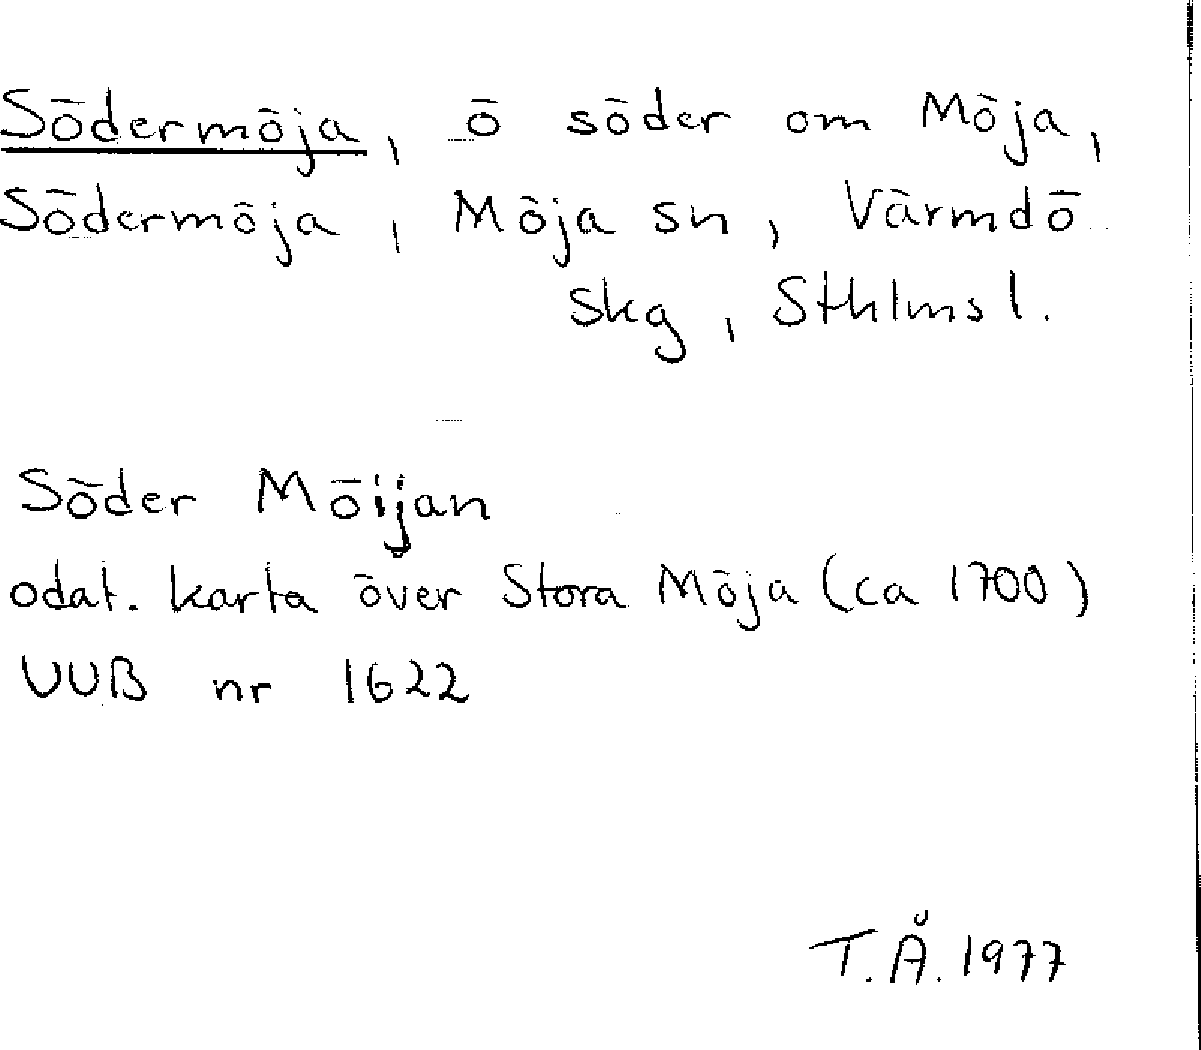 Södermöja, ö söder om Möja,
Södermöja, Möja sn, Värmdö
skg, Sthlms l.
Söder Möijan
odat. karta över Stora Möja (ca 1700)
UUB nr 1622
T.Å. 1977